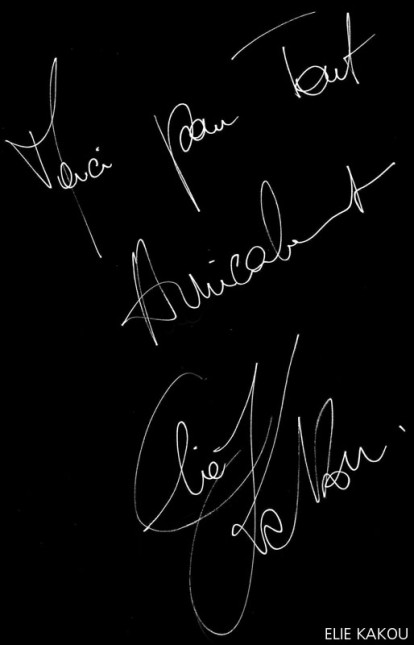 Merci pour Tout
Amicalement
Elie Kakou
ELIE KAKOU